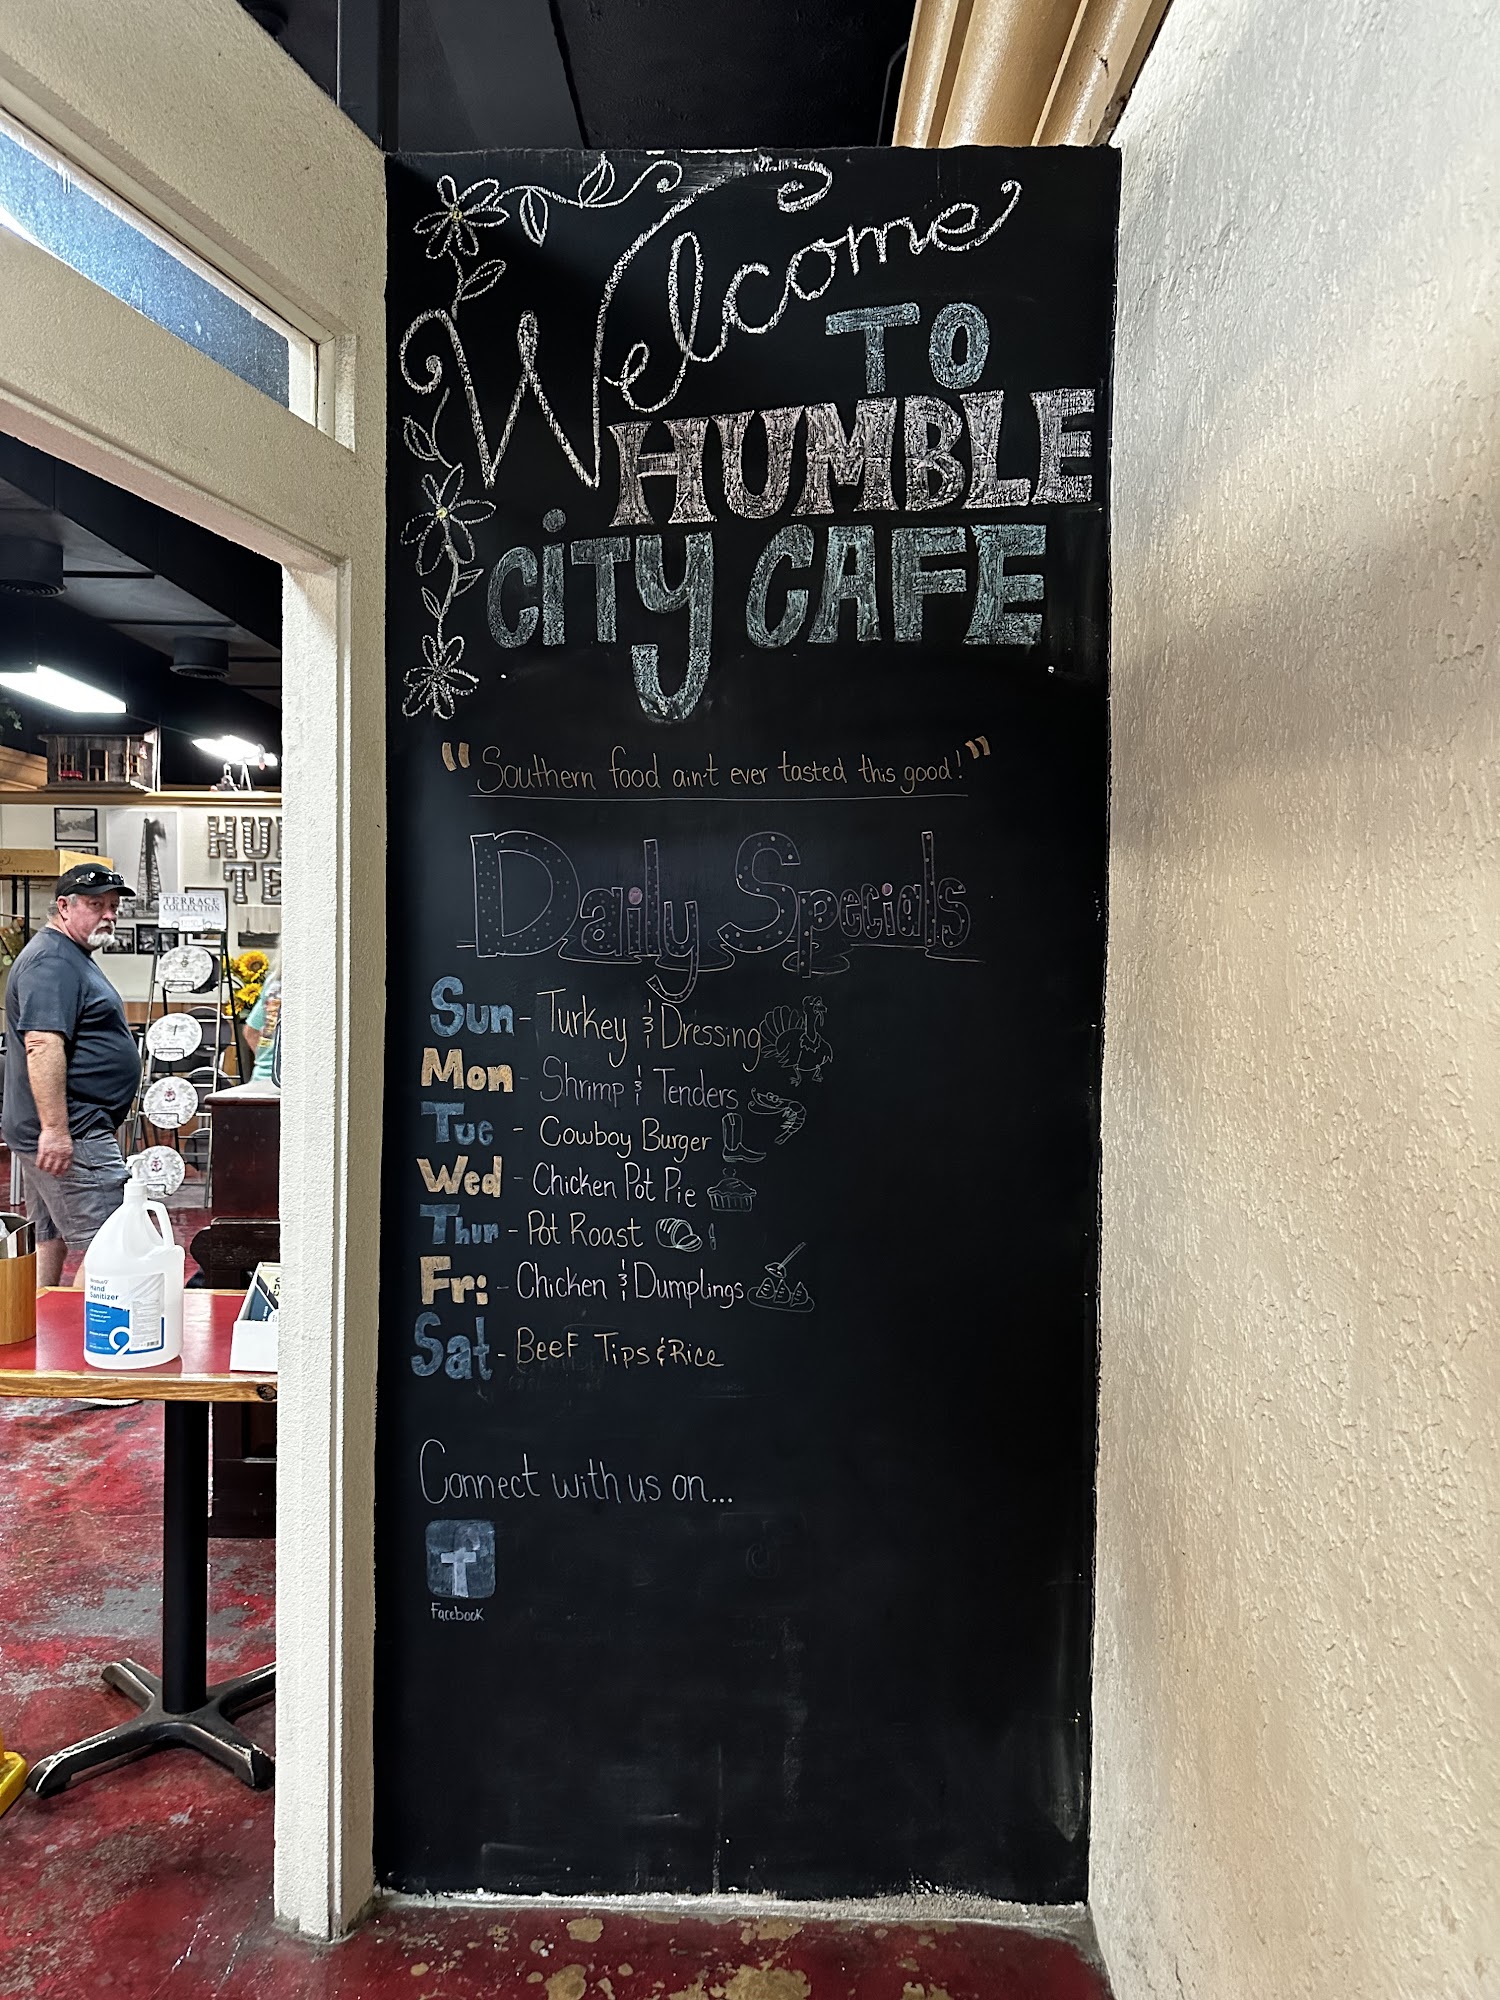 Welcome
TO
HUMBLE
CiTY CAFE
"Southern food ain't ever tasted this good!"
Daily Specials
Sun - Turkey & Dressing
Mon - Shrimp & Tenders
Tue - Cowboy Burger
Wed - Chicken Pot Pie
Thur - Pot Roast
Fri - Chicken & Dumplings
Sat - BEEF TIPS & RICE
Connect with us on...
f
Facebook
TERRACE
COLLECTION
HU
TE
Hand
Sanitizer